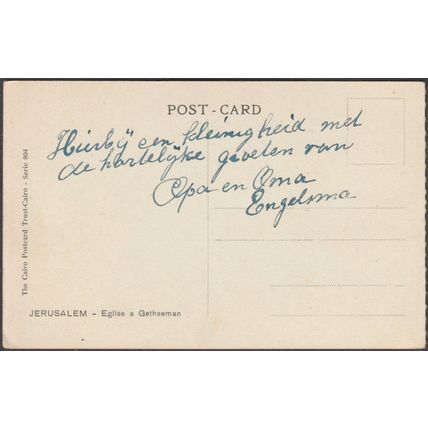 POST - CARD
Hierbij een kleinigheid met
de hartelijke groeten van
Opa en Oma
Engelsma
The Cairo Postcard Trust-Cairo - Serie 804
JERUSALEM - Eglise a Gethseman